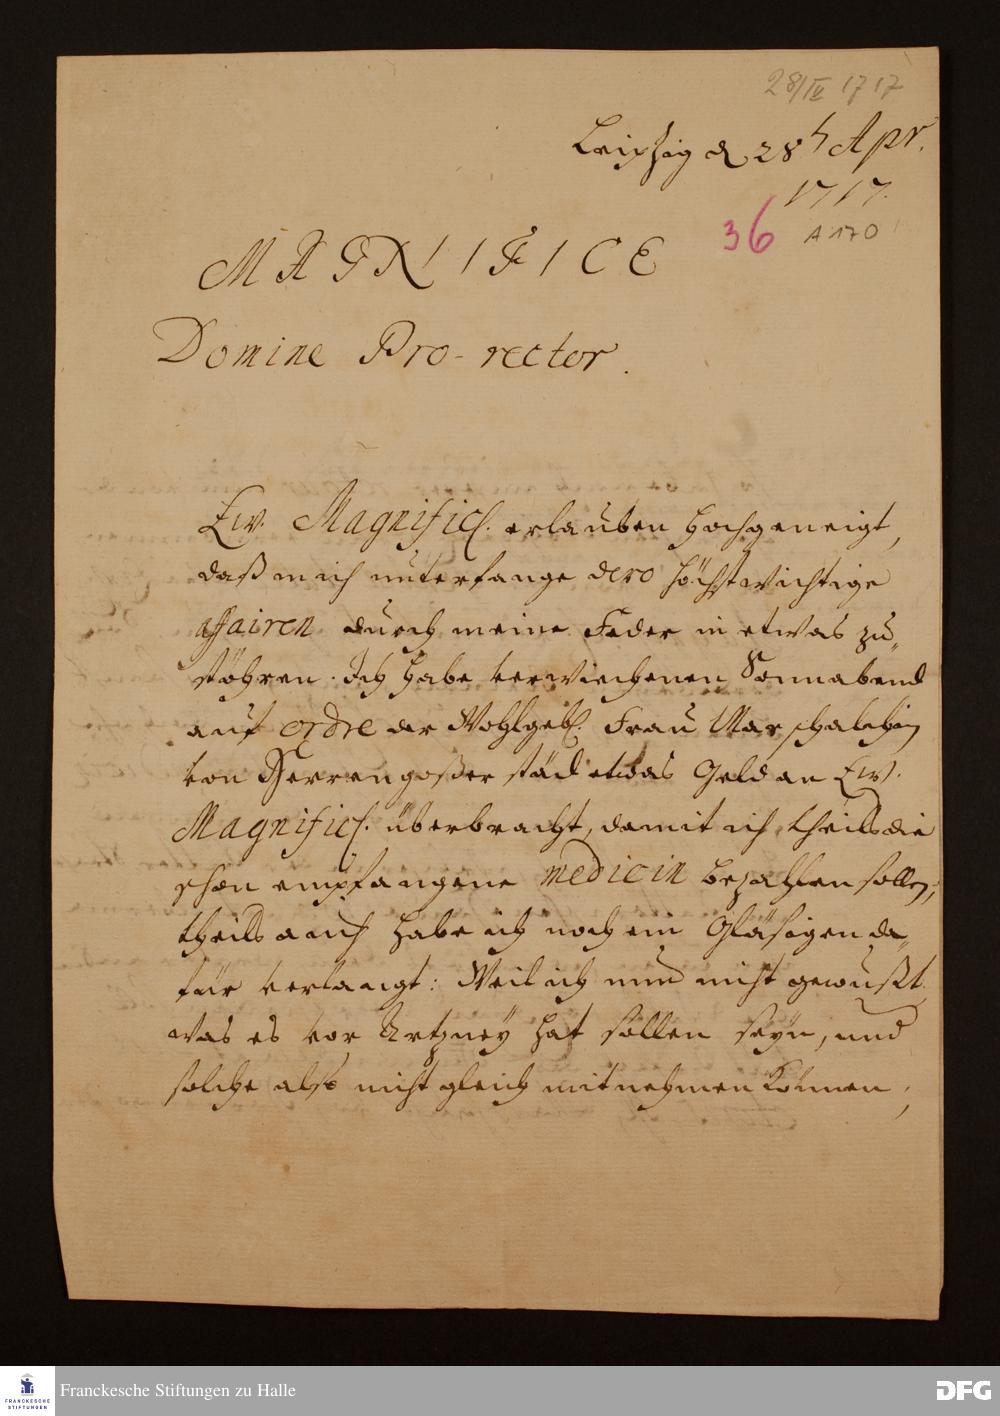 28/IV 1717
Leipzig d. 28t Apr.
1717.
36 A 170
MAGNIFICE
Domine Pro-rector.
Ew. Magnific. erlauben hochgeneigt,
daß mich unterfange dero höchstwichtige
affairen durch meine Feder in etwas zu
stöhren. Ich habe verwichenen Sonnabend
auf ordre der Wohlgeb. Frau Marschalchin
von Herrengoßerstäd etwas Geld an Ew.
Magnific. überbracht, damit ich theils die
schon empfangene medicin bezahlen sollen,
theils auch habe ich noch ein Gläsigen da-
für verlangt: Weil ich nun nicht gewußt
was es vor Artzney hat sollen seyn, und
solche also nicht gleich mitnehmen können,
Franckesche Stiftungen zu Halle
FRANCKESCHE
STIFTUNGEN
DFG